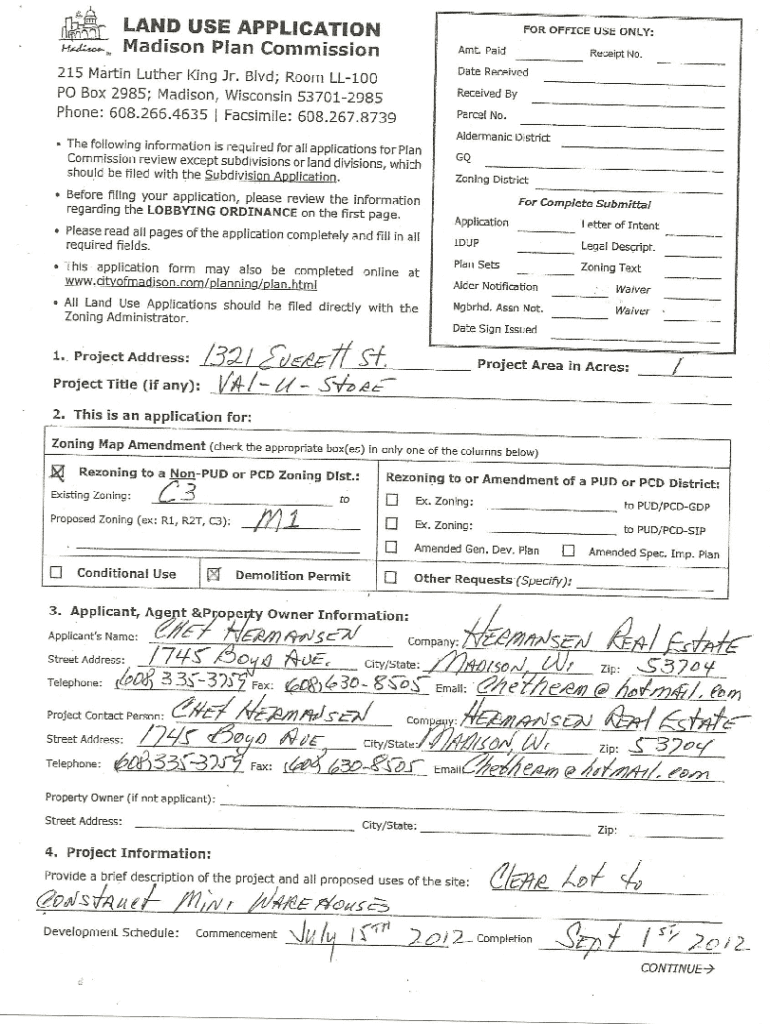 LAND USE APPLICATION
Madison Plan Commission
Madison
215 Martin Luther King Jr. Blvd; Room LL-100
PO Box 2985; Madison, Wisconsin 53701-2985
Phone: 608.266.4635 | Facsimile: 608.267.8739
• The following information is required for all applications for Plan
Commission review except subdivisions or land divisions, which
should be filed with the Subdivision Application.
• Before filing your application, please review the information
regarding the LOBBYING ORDINANCE on the first page.
• Please read all pages of the application completely and fill in all
required fields.
• This application form may also be completed online at
www.cityofmadison.com/planning/plan.html
• All Land Use Applications should be filed directly with the
Zoning Administrator.
FOR OFFICE USE ONLY:
Amt. Paid Receipt No.
Date Received
Received By
Parcel No.
Aldermanic District
GQ
Zoning District
For Complete Submittal
Application Letter of Intent
IDUP Legal Descript.
Plan Sets Zoning Text
Alder Notification Waiver
Ngbrhd. Assn Not. Waiver
Date Sign Issued
1. Project Address: 1321 EVERETT St. Project Area in Acres: 1
Project Title (if any): VAl-U-StORE
2. This is an application for:
Zoning Map Amendment (check the appropriate box(es) in only one of the columns below)
Rezoning to a Non-PUD or PCD Zoning Dist.:
Existing Zoning: C3 to
Proposed Zoning (ex: R1, R2T, C3): M1
Rezoning to or Amendment of a PUD or PCD District:
Ex. Zoning: to PUD/PCD-GDP
Ex. Zoning: to PUD/PCD-SIP
Amended Gen. Dev. Plan Amended Spec. Imp. Plan
Conditional Use Demolition Permit Other Requests (Specify):
3. Applicant, Agent &Property Owner Information:
Applicant's Name: CHET HERMANSEN Company: HERMANSEN REAL EStAtE
Street Address: 1745 BOYD AVE. City/State: MADISON, Wi Zip: 53704
Telephone: (608) 335-3759 Fax: (608) 630-8505 Email: Chetherm@hotmAil.com
Project Contact Person: CHET HERMANSEN Company: HERMANSEN REAL EStAtE
Street Address: 1745 BOYD AVE, City/State: MADISON, Wi. Zip: 53704
Telephone: (608) 335-3759 Fax: (608) 630-8505 Email: Chetherm@hotmAil.com
Property Owner (if not applicant):
Street Address: City/State: Zip:
4. Project Information:
Provide a brief description of the project and all proposed uses of the site: CLEAR Lot to
CONStRUCt MINI WAREHOUSES
Development Schedule: Commencement July 15TH 2012 Completion Sept 1st, 2012
CONTINUE→